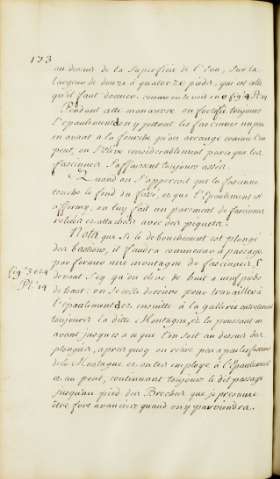 173
au dessus de la Superficie de l'eau, Sur la
largeur de douze à quatorze pieds, qui est celle
qu'il faut donner, comme on le voit en fig. 4 Pl. 14
Pendant cette manœuvre on fortifie toujours
l'epaulement en y jettant les fascines un peu
en avant à la fourche qu'on arrange comme l'on
peut, on l'Eleve considerablement parce que les
fascines S'affaissent toujours assés.
Quand on S'apperçoit que la fascine
touche le fond du fossé, et que l'Epaulement est
affermy, on luy fait un parement de fascines
reliées et attachées avec des piquets.
Nota que Si le debordement est plongé
des bastions, il faudra commencer le passage
par former une montagne de fascines,
devant Soy qu'on eleve de huit à neuf pieds
de haut, on Se cele derriere pour travailler à
l'epaulement et ensuitte à la gallerie, entretenant
toujours la ditte Montagne, et la poussant en
avant jusques a ce que l'on Soit au dessus des
plongées, apres quoy on retire peu a peu les fascines
de la Montagne et on les employe à l'Epaulement
et au pont, continuant toujours le dit passage
jusqu'au pied des Breches que je presume
être fort avancées quand on y parviendra.
fig. 3 et 4
Pl. 14